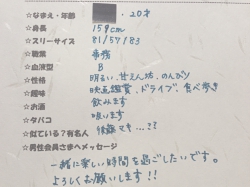 ☆なまえ・年齢 ・20才
☆身長 159cm
☆スリーサイズ 81/57/83
☆職業 事務
☆血液型 B
☆性格 明るい、甘えん坊、のんびり
☆趣味 映画鑑賞、ドライブ、食べ歩き
☆お酒 飲みます
☆タバコ 吸います
☆似ている？有名人 後藤マキ…??
☆男性会員さまへメッセージ
一緒に楽しい時間を過ごしたいです。
よろしくお願いします!!